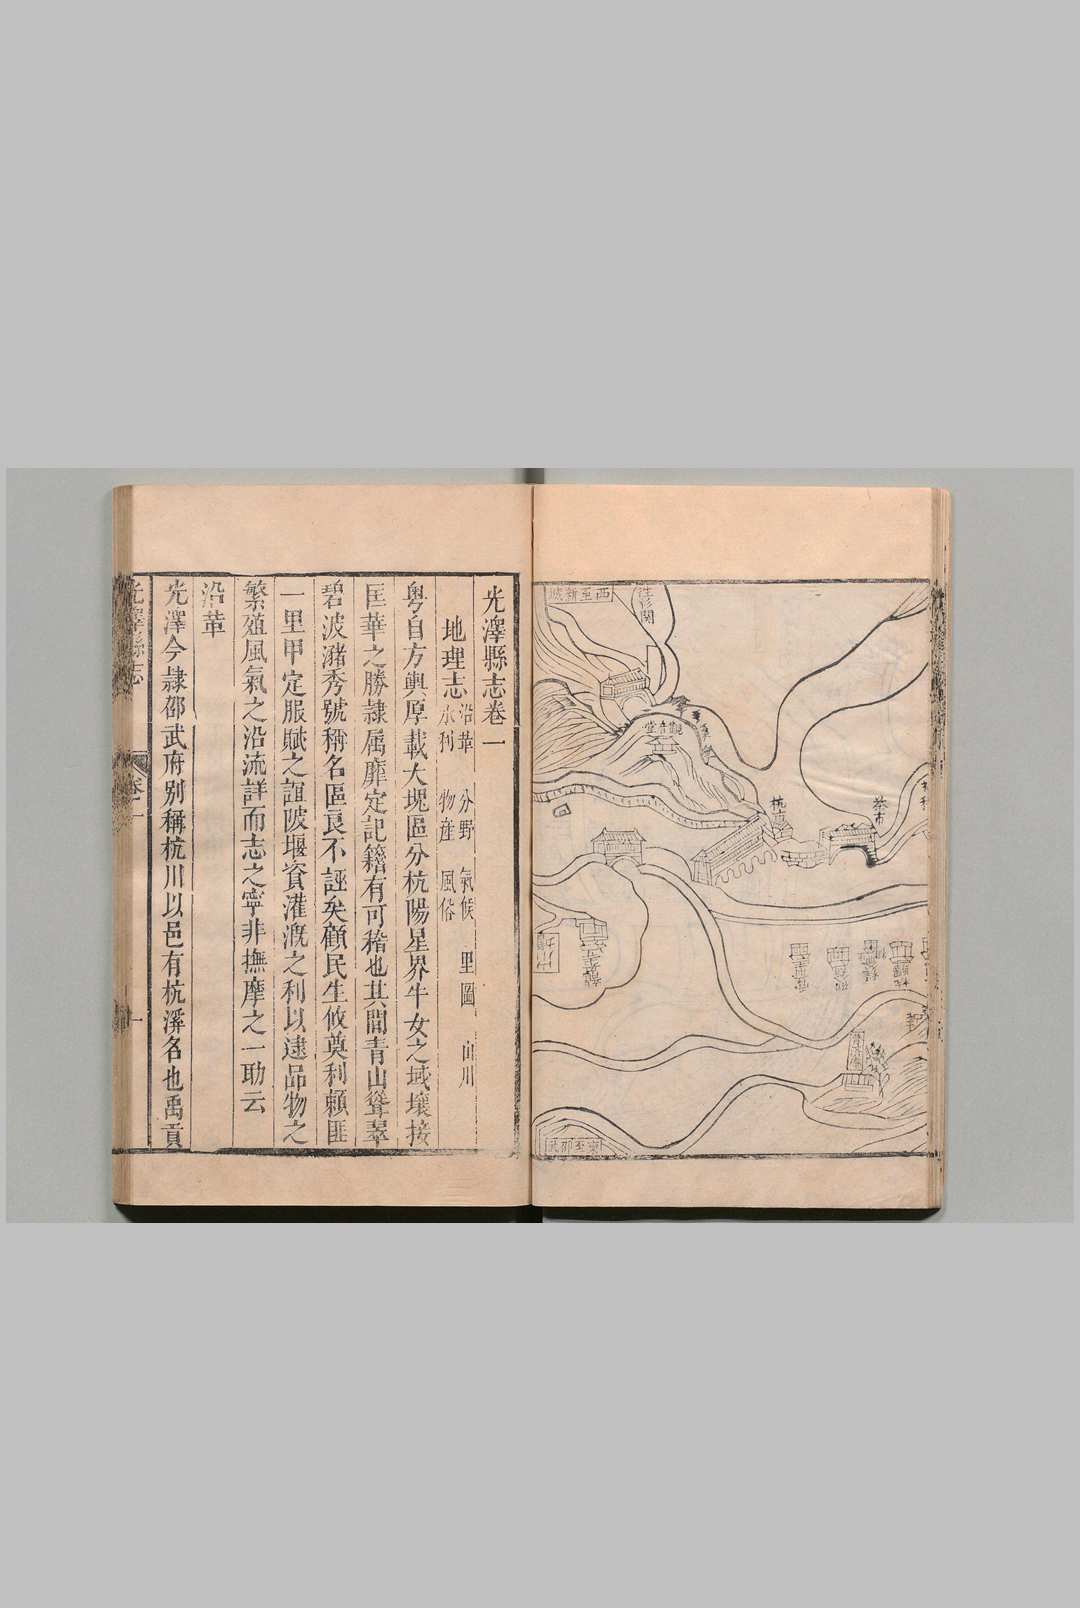 西至新城
往杉關
觀音堂
杭市
茶市
東至邵武
光澤縣志卷一
地理志 沿革 分野 氣候 里圖 山川
水利 物產 風俗
粤自方輿厚載大塊區分杭陽星界牛女之域壤接
匡華之勝隷屬靡定記籍有可稽也其間青山聳翠
碧波瀦秀號稱名區良不誣矣顧民生攸奠利賴匪
一里甲定服賦之誼陂堰資灌溉之利以逮品物之
繁殖風氣之沿流詳而志之寧非撫摩之一助云
沿革
光澤今隷邵武府别稱杭川以邑有杭溪名也禹貢
光澤縣志
卷一
一